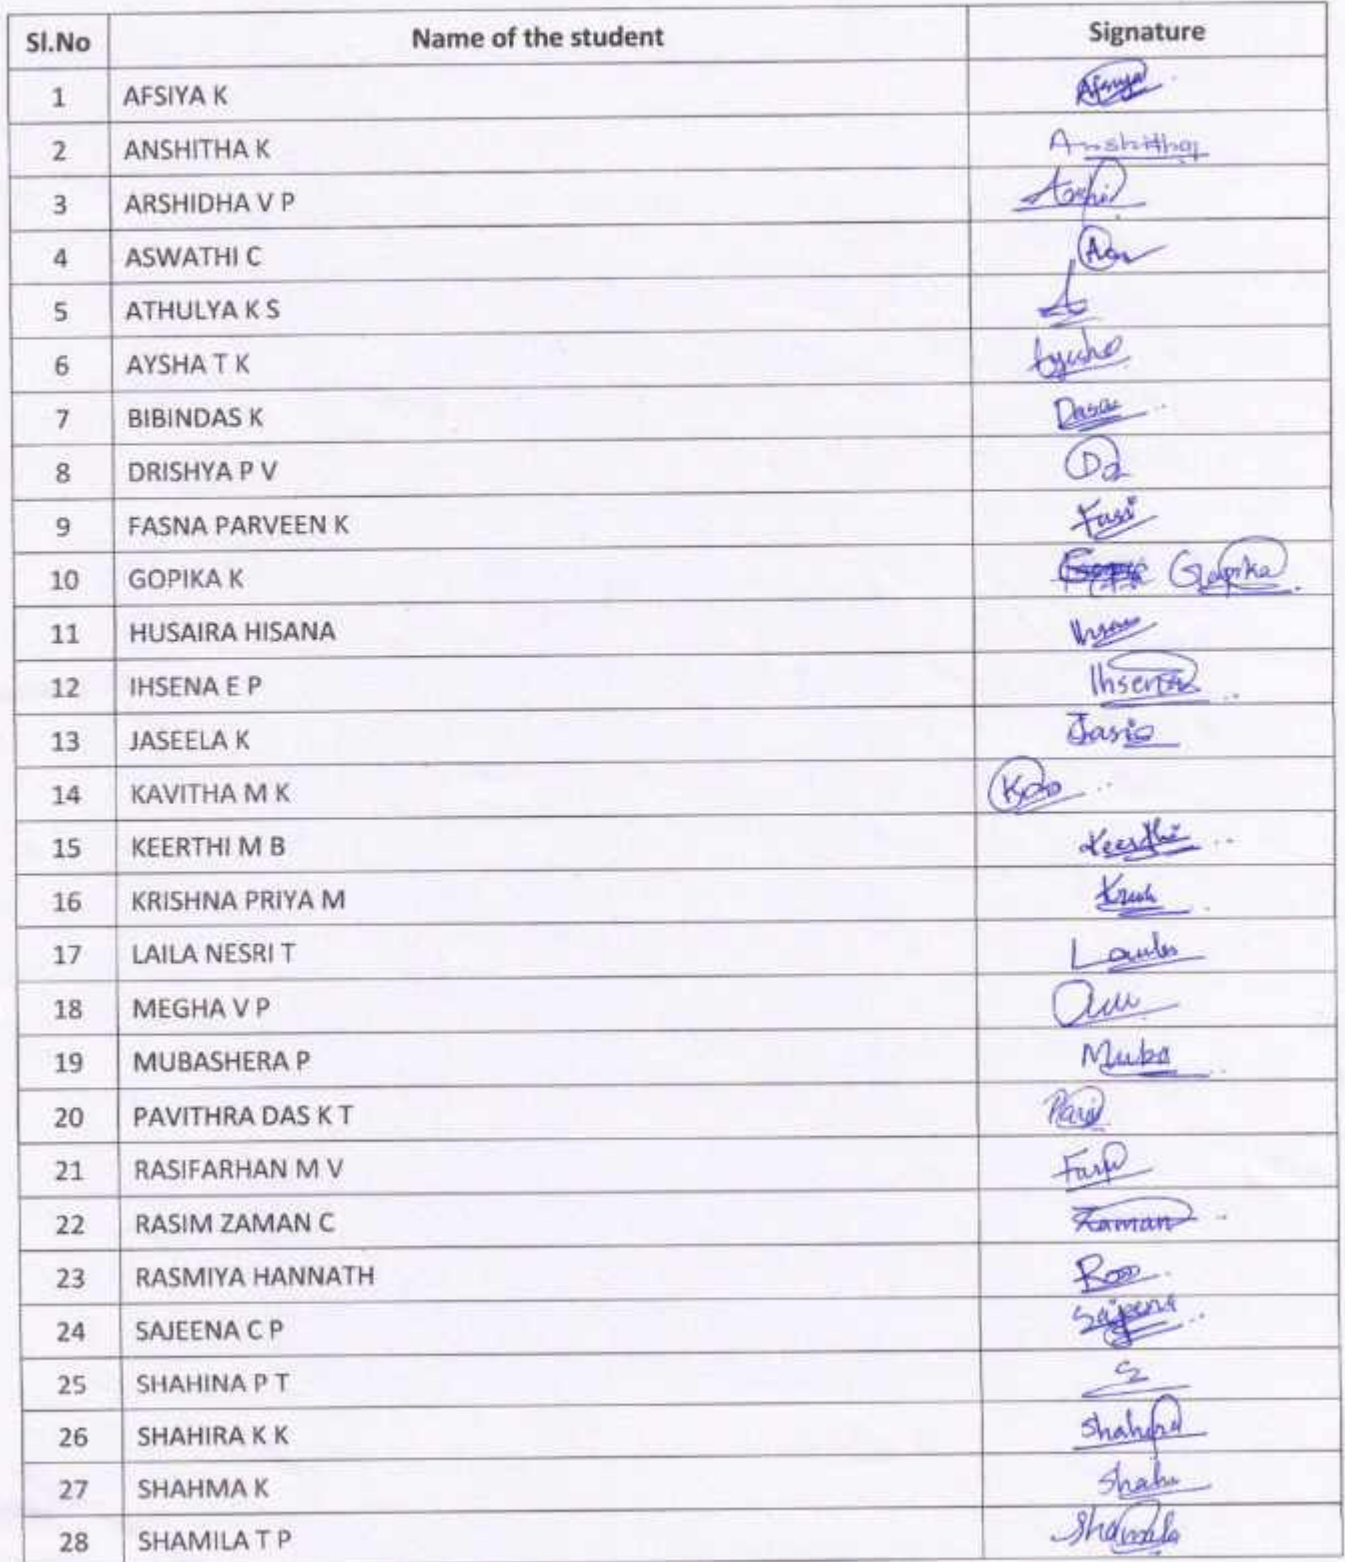 Sl.No Name of the student Signature
1 AFSIYA K Afsiya
2 ANSHITHA K Anshitha
3 ARSHIDHA V P Arshid
4 ASWATHI C
5 ATHULYA K S
6 AYSHA T K Aysha
7 BIBINDAS K
8 DRISHYA P V
9 FASNA PARVEEN K Fasi
10 GOPIKA K Gopika
11 HUSAIRA HISANA
12 IHSENA E P Ihsena
13 JASEELA K
14 KAVITHA M K
15 KEERTHI M B Keerthi
16 KRISHNA PRIYA M Krish
17 LAILA NESRI T
18 MEGHA V P
19 MUBASHERA P Muba
20 PAVITHRA DAS K T Pavi
21 RASIFARHAN M V
22 RASIM ZAMAN C Zaman
23 RASMIYA HANNATH
24 SAJEENA C P Sajeena
25 SHAHINA P T
26 SHAHIRA K K Shahira
27 SHAHMA K Shahm
28 SHAMILA T P Shamila